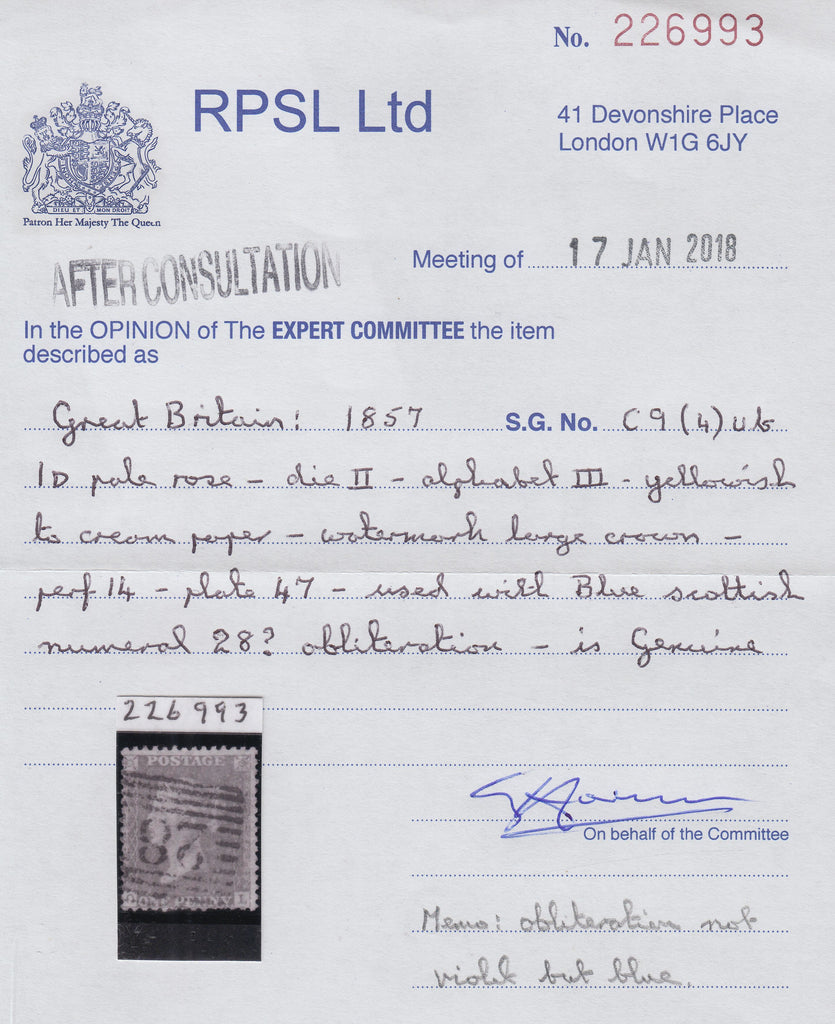 No. 226993
RPSL Ltd
41 Devonshire Place
London W1G 6JY
DIEU ET MON DROIT
Patron Her Majesty The Queen
AFTER CONSULTATION
Meeting of 17 JAN 2018
In the OPINION of The EXPERT COMMITTEE the item
described as
Great Britain: 1857 S.G. No. C9(4)ub
1D pale rose - die II - alphabet III - yellowish
to cream paper - watermark large crown -
perf 14 - plate 47 - used with Blue scottish
numeral 28? obliteration - is Genuine
226993
POSTAGE
28
ONE PENNY L
On behalf of the Committee
Memo: obliteration not
violet but blue.